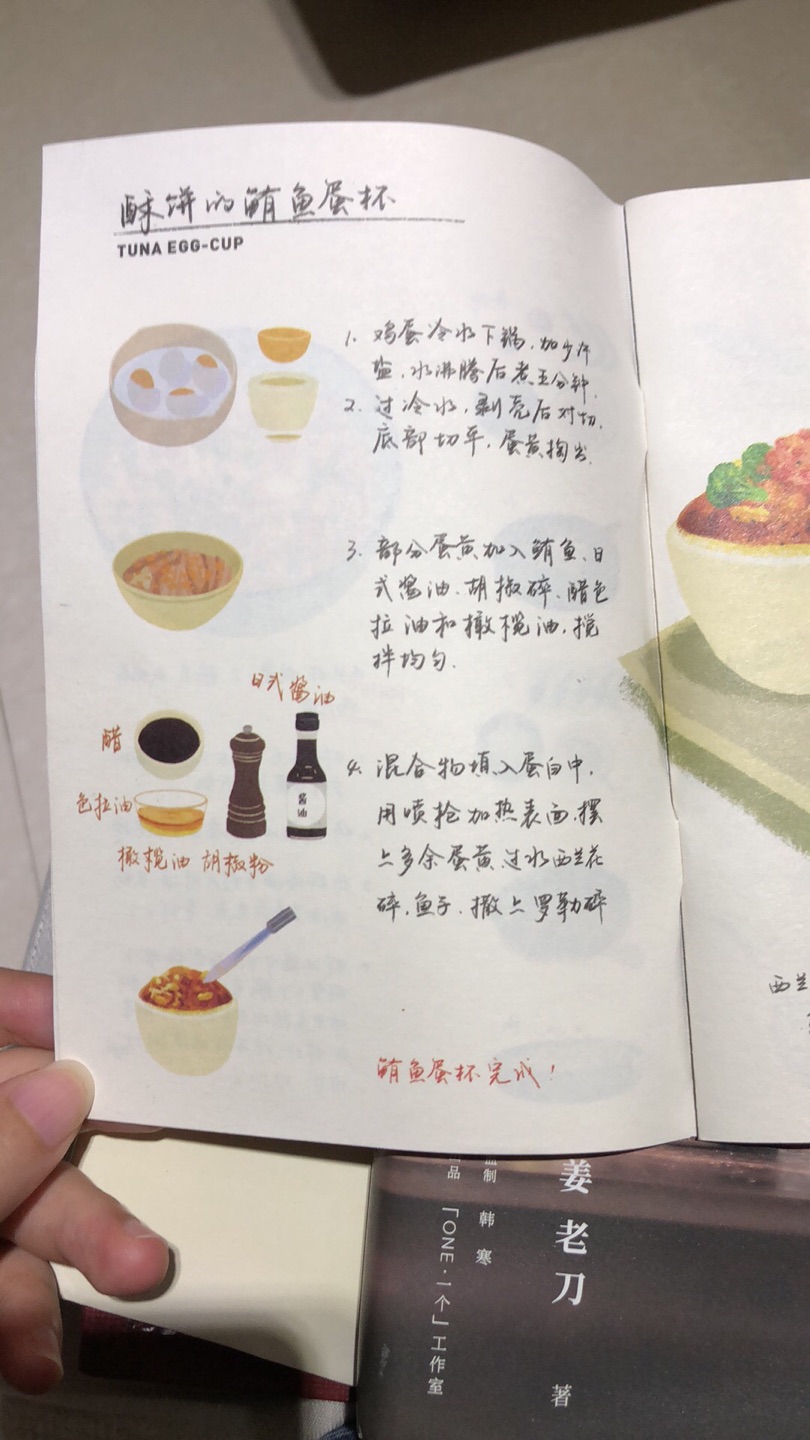 酥饼的鲔鱼蛋杯
TUNA EGG-CUP
1. 鸡蛋冷水下锅,加少许
盐,水沸腾后煮五分钟.
2. 过冷水,剥壳后对切.
底部切平,蛋黄掏出.
3. 部分蛋黄加入鲔鱼、日
式酱油、胡椒碎、醋色
拉油和橄榄油,搅
拌均匀.
日式酱油
醋
色拉油
酱油
橄榄油 胡椒粉
4. 混合物填入蛋白中,
用喷枪加热表面,摆
上多余蛋黄、过水西兰花
碎,鱼子、撒上罗勒碎
鲔鱼蛋杯完成!
西兰
姜老刀 著
监制 韩寒
出品 「ONE·一个」工作室